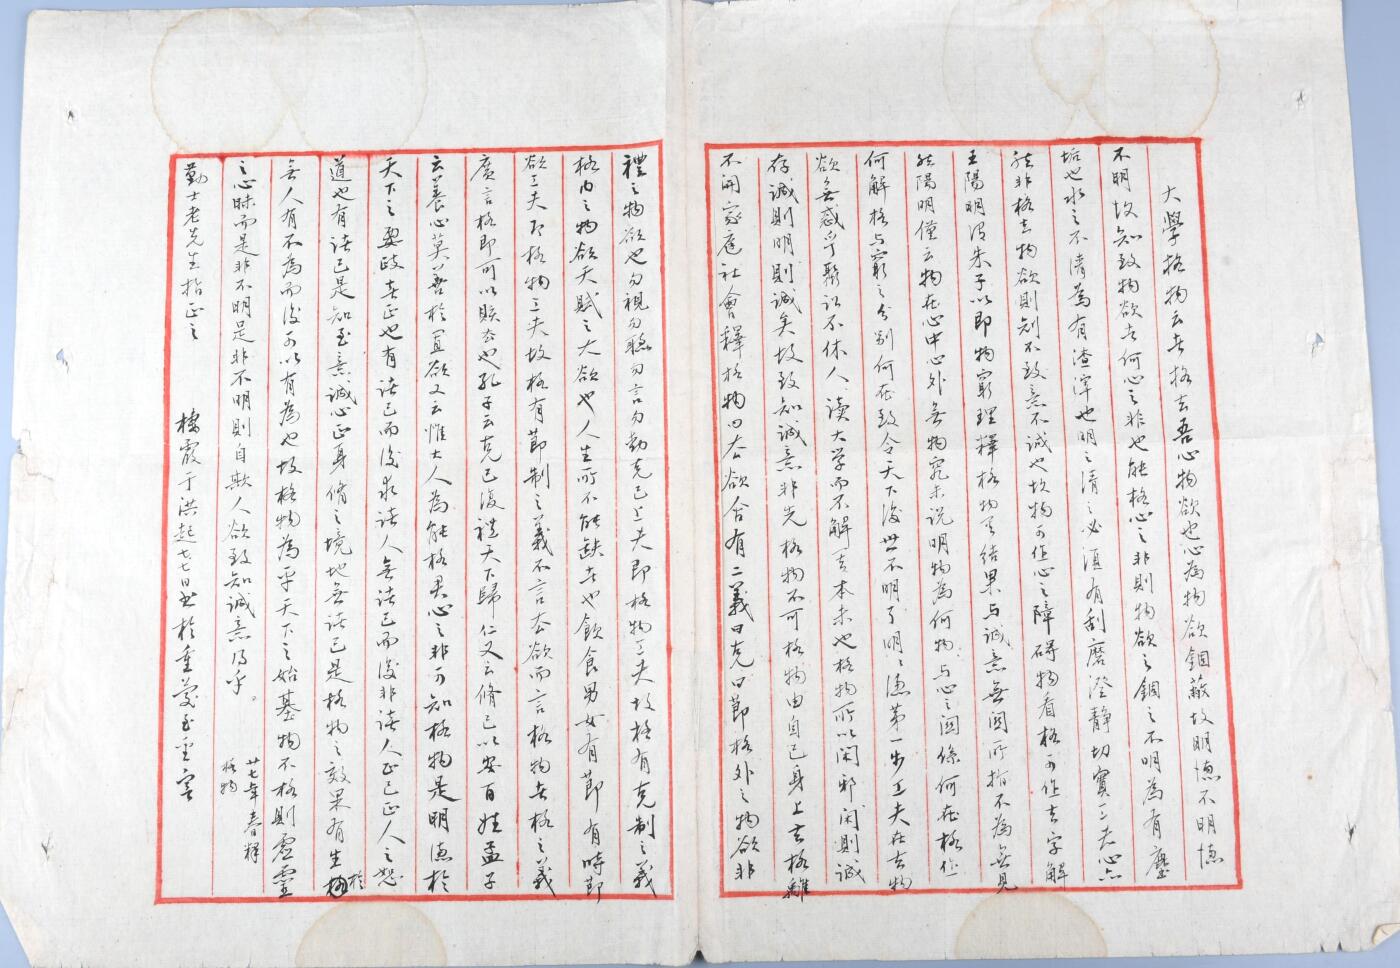 大學格物云者格去吾心物欲也心為物欲錮蔽故明德不明德
不明故知致物欲者何心之非也能格心之非則物欲之錮之不明為有塵
垢也水之不清為有渣滓也明之清之必須有刮磨澄靜切實工夫心亦
然非格去物欲則知不致意不誠也故物可作心之障碍物看格可作去字解
王陽明謂朱子以即物窮理釋格物其結果與誠意無関所指不為無見
然陽明僅云物在心中心外無物究未說明物為何物與心之関係何在格作
何解格與窮之分別何在致令天下後世不明了明明德第一步工夫在去物
欲無惑乎聚訟不休人讀大学而不解其本末也格物所以闲邪闲則誠
存誠則明明則誠矣故致知誠意非先格物不可格物由自己身上去格離
不開家庭社會釋格物曰去欲含有二義曰克曰節格外之物欲非
禮之物欲也勿視勿聽勿言勿動克己工夫即格物工夫故格有克制之義
格內之物欲天賦之大欲也人生所不能缺者也飲食男女有節有時節
欲工夫即格物工夫故格有節制之義不言去欲而言格物者格之義
廣言格即可以賅去也孔子云克己復禮天下歸仁又云脩己以安百姓孟子
云養心莫善於寡欲又云惟大人為能格君心之非可知格物是明德於
天下之要歧者正也有諸己而後求諸人無諸己而後非諸人正己正人之恕
道也有諸己是知至意誠心正身脩之境地無諸己是格物之效果有生於
無人有不為而後可以有為也故格物為平天下之始基物不格則虛靈
之心昧而是非不明是非不明則自欺人欲致知誠意得乎。
廿七年春釋
格物
勤士老先生指正之
棲霞于洪起七七日書於重慶